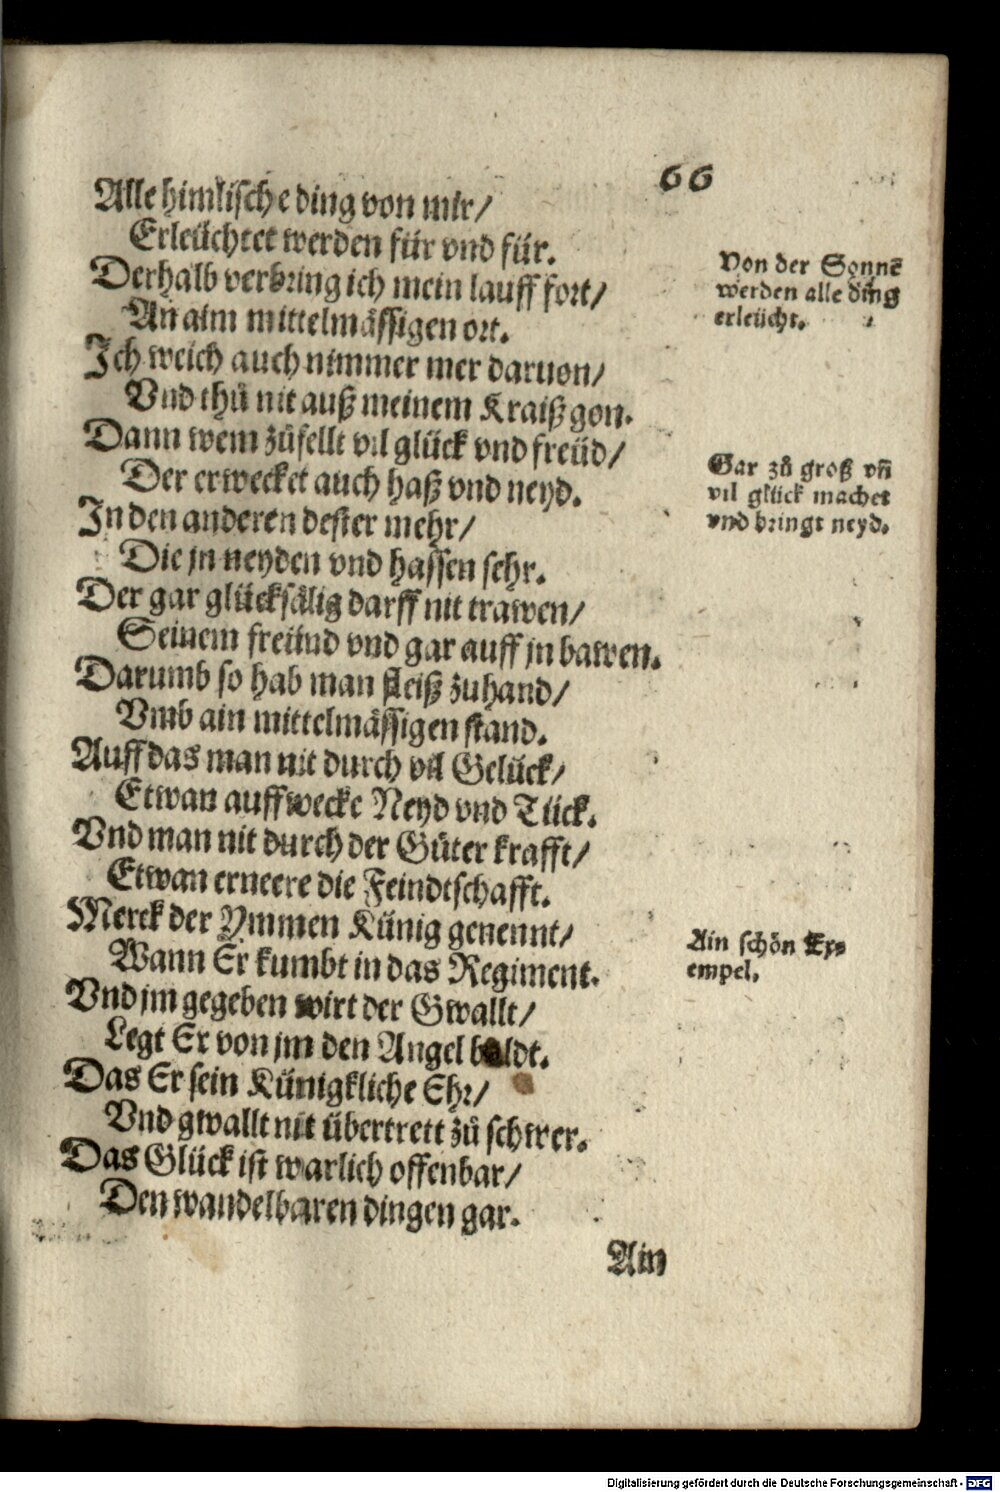 66
Alle himlische ding von mir/
Erleüchtet werden für vnd für.
Derhalb verbring ich mein lauff fort/
An aim mittelmässigen ort.
Ich weich auch nimmer mer daruon/
Vnd thů nit auß meinem Kraiß gon.
Dann wem zůfellt vil glück vnd freüd/
Der erwecket auch haß vnd neyd.
In den anderen dester mehr/
Die jn neyden vnd hassen sehr.
Der gar glücksälig darff nit trawen/
Seinem freünd vnd gar auff jn bawen.
Darumb so hab man fleiß zuhand/
Vmb ain mittelmässigen stand.
Auff das man nit durch vil Gelück/
Etwan auffwecke Neyd vnd Tück.
Vnd man nit durch der Güter krafft/
Etwan erneere die Feindtschafft.
Merck der Ymmen Künig genennt/
Wann Er kumbt in das Regiment.
Vnd jm gegeben wirt der Gwallt/
Legt Er von jm den Angel baldt.
Das Er sein Künigkliche Ehr/
Vnd gwallt nit übertrett zů schwer.
Das Glück ist warlich offenbar/
Den wandelbaren dingen gar.
Ain
Von der Sonnē
werden alle ding
erleücht.
Gar zů groß vñ
vil glück machet
vnd bringt neyd.
Ain schön Ex=
empel.
Digitalisierung gefördert durch die Deutsche Forschungsgemeinschaft - DFG